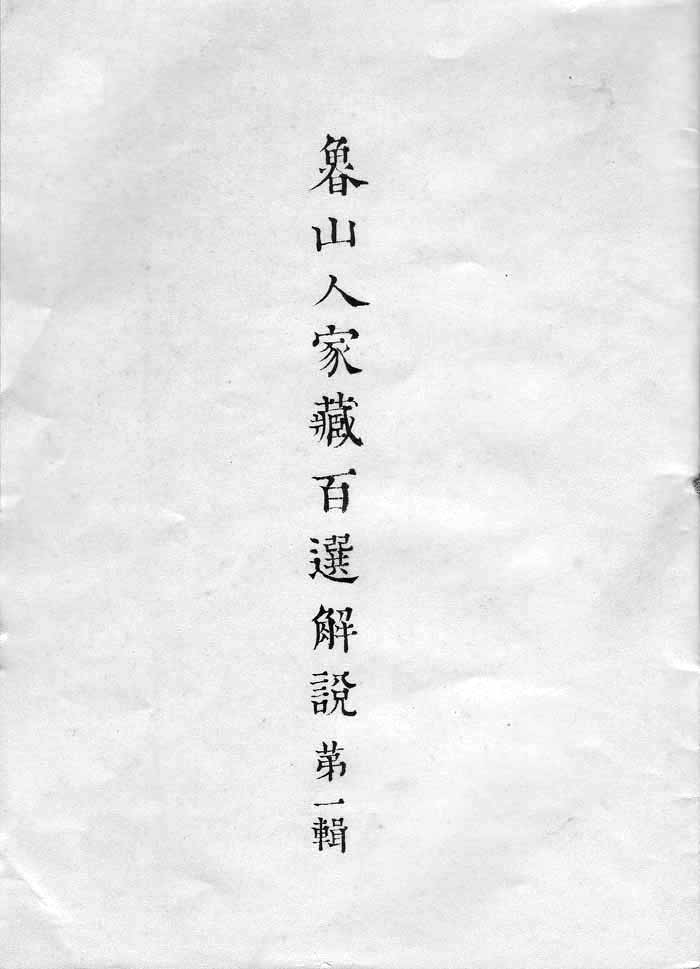 魯山人家藏百選解說第一輯